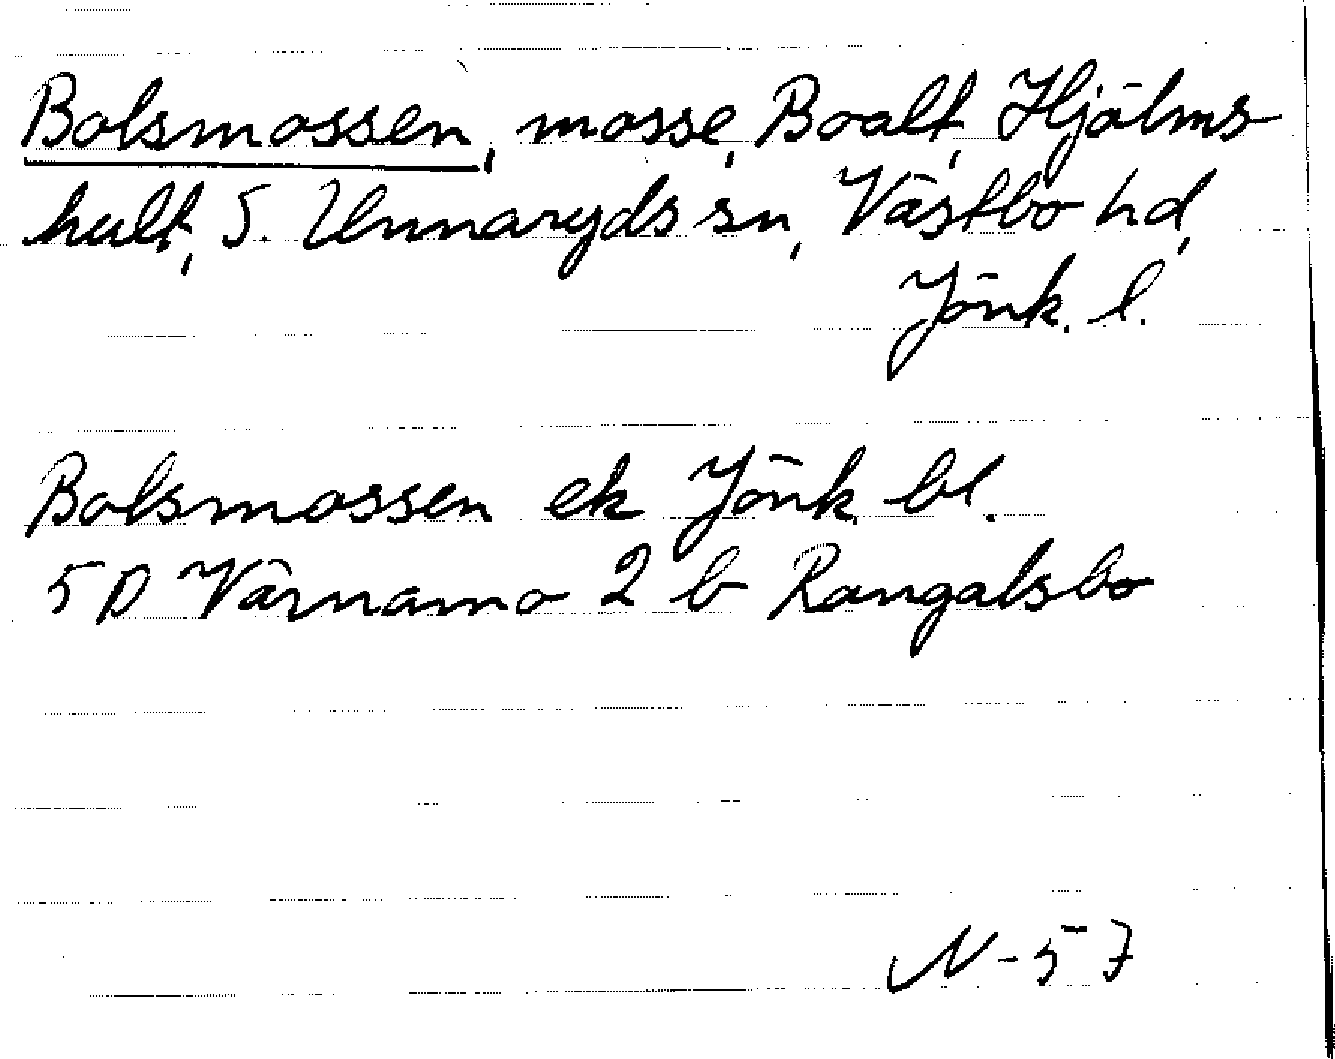 Bolsmossen, mosse, Boalt, Hjälms
hult, S. Unnaryds sn, Västbo hd,
Jönk. l.
Bolsmossen ek Jönk. bl.
5 D Värnamo 2 b Rangalsbo
N-57